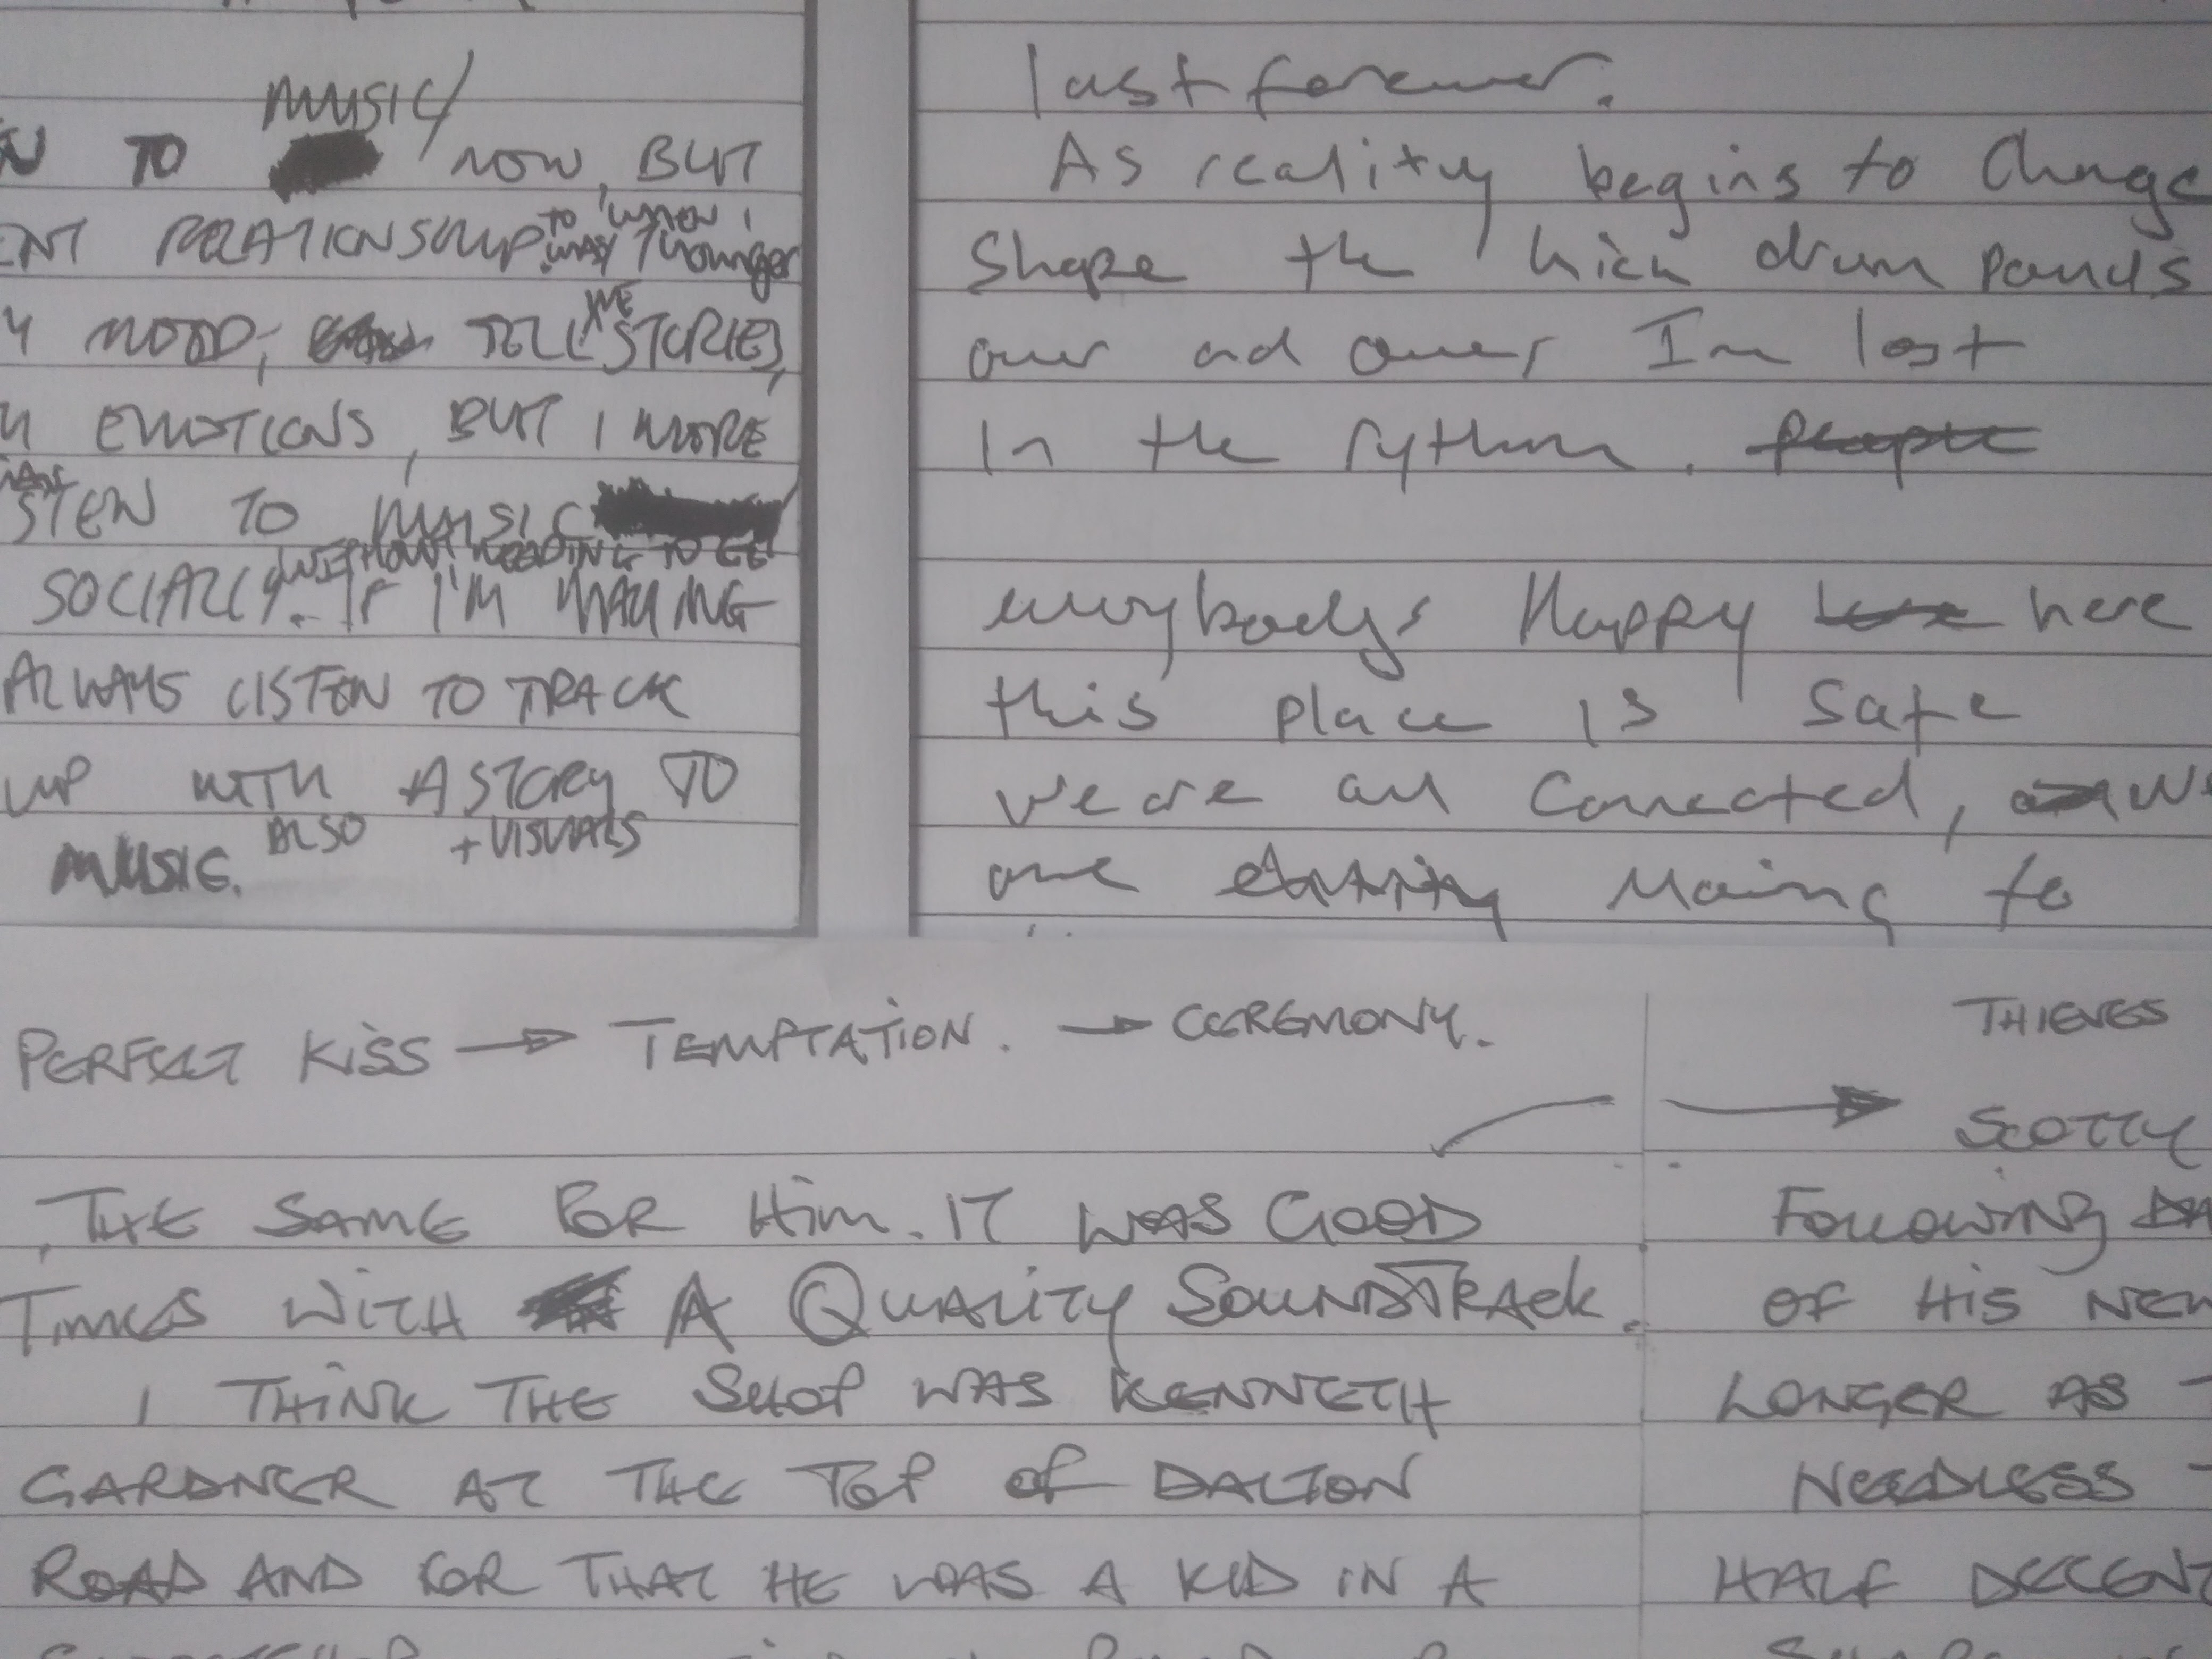 MUSIC/
TO NOW, BUT
ENT RELATIONSHIP TO WHEN I
WAS YOUNGER
MOOD; TELL ME STORIES,
EMOTIONS, BUT I MORE
STEN TO MUSIC
WITHOUT NEEDING TO GET
SOCIALLY. IF I'M MAKING
ALWAYS LISTEN TO TRACK
UP WITH A STORY TO
MUSIC. ALSO + VISUALS
last forever.
As reality begins to Change
Shape the kick drum pounds
over and over, Im lost
In the rythum.
everybodys Happy here
this place is safe
we are all Connected,
one entity Moving to
PERFECT KISS → TEMPTATION. → CEREMONY.
THE SAME FOR HIM. IT WAS GOOD
TIMES WITH A QUALITY SOUNDTRACK.
I THINK THE SHOP WAS KENNETH
GARDNER AT THE TOP OF DALTON
ROAD AND FOR THAT HE WAS A KID IN A
THIEVES
→ SCOTTY
FOLLOWING
OF HIS NEW
LONGER AS
NEEDLESS
HALF DECENT